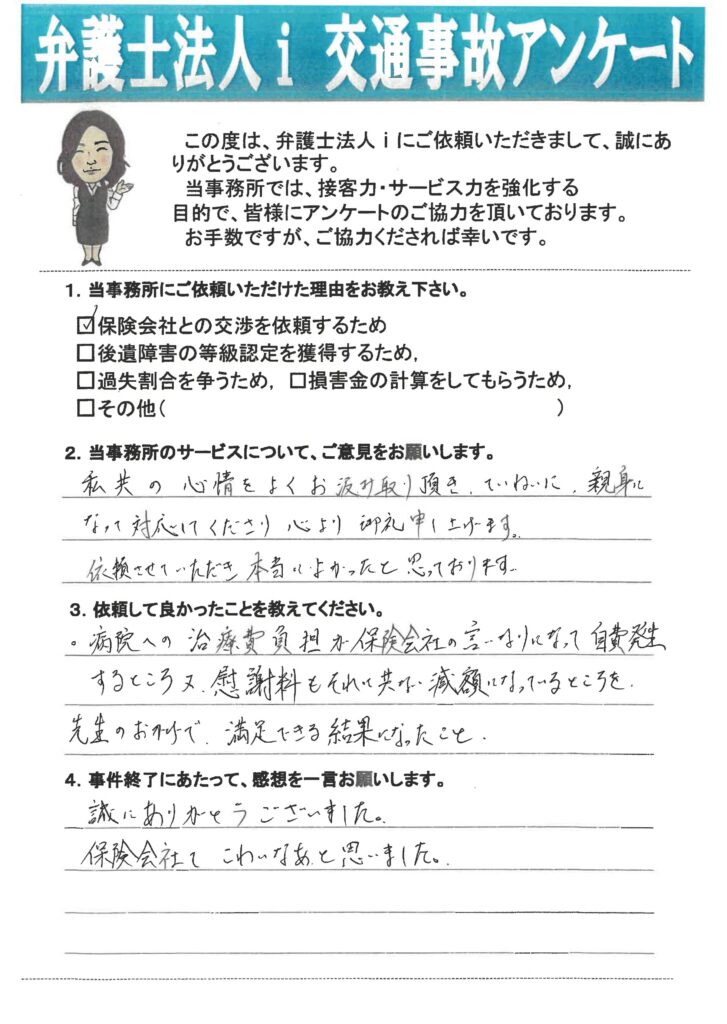 弁護士法人ｉ 交通事故アンケート
この度は、弁護士法人ｉにご依頼いただきまして、誠にあ
りがとうございます。
当事務所では、接客力・サービス力を強化する
目的で、皆様にアンケートのご協力を頂いております。
お手数ですが、ご協力くだされば幸いです。
1. 当事務所にご依頼いただけた理由をお教え下さい。
☑保険会社との交渉を依頼するため
□後遺障害の等級認定を獲得するため,
□過失割合を争うため, □損害金の計算をしてもらうため,
□その他( )
2. 当事務所のサービスについて、ご意見をお願いします。
私共の心情をよくお汲み取り頂き、ていねいに、親身に
なって対応してくださり心より御礼申し上げます。
依頼させていただき本当によかったと思っております。
3. 依頼して良かったことを教えてください。
。病院への治療費負担が保険会社の言いなりになって自費発生
するところ又、慰謝料もそれに共ない減額になっているところを、
先生のおかげで、満足できる結果になったこと、
4. 事件終了にあたって、感想を一言お願いします。
誠にありがとうございました。
保険会社てこわいなあと思いました。